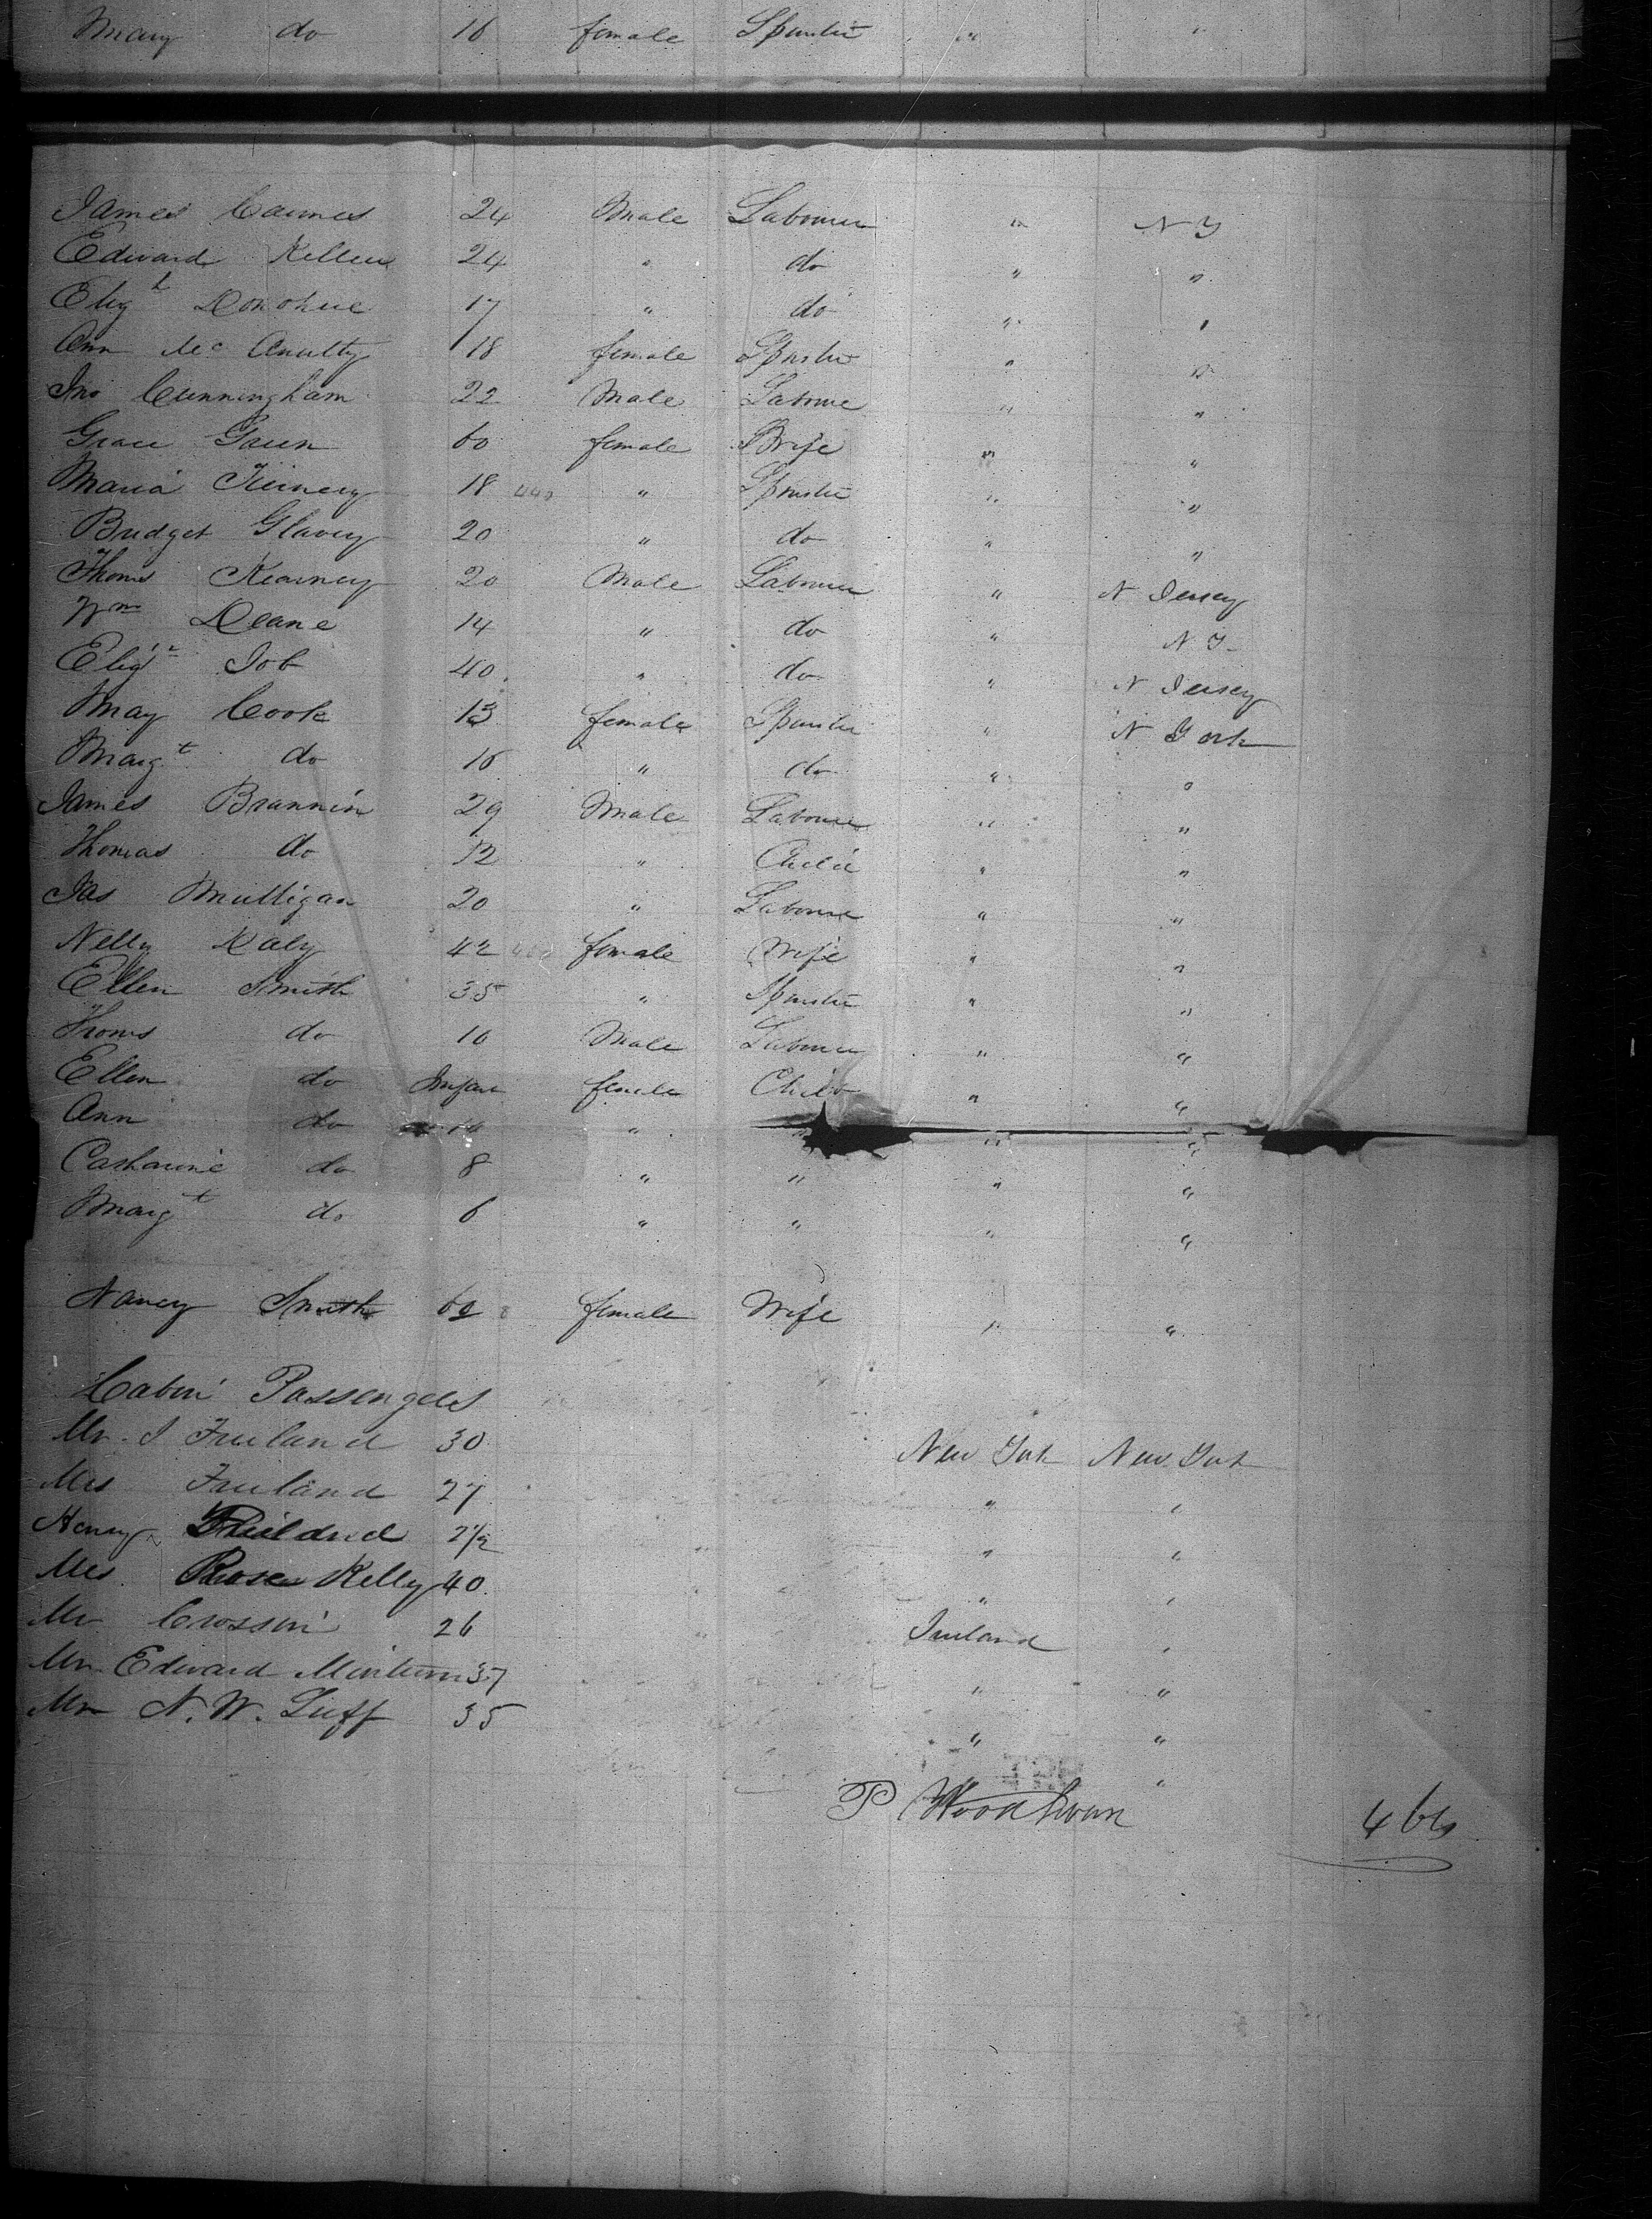 Mary do 16 female Spinster " "
James Carnes 24 Male Labourer " N Y
Edward Kellen 24 " do " "
Elizt Donohue 17 " do " "
Ann Mc Anulty 18 female Spinster " "
Jno Cunningham 22 Male Labourer " "
Grace Green 60 female Wife " "
Maria 18 " Spinster " "
Bridget Glavey 20 " do " "
Thoms Kearney 20 Male Labourer " N Jersey
Wm Deane 14 " do " N Y
Elizt Job 40 " do " N Jersey
May Cook 13 female Spinster " N York
Margt do 16 " do " "
James Brannin 29 Male Labourer " "
Thomas do 12 " Child " "
Jas Mulligan 20 " Labourer " "
Nelly Daly 42 female Wife " "
Ellen Smith 35 " Spinster " "
Thoms do 10 Male Labourer " "
Ellen do Infant female Child " "
Ann do " " " "
Catharine do 8 " " " "
Margt do 6 " " " "
Nancy Smith 60 female Wife " "
Cabin Passengers
Mr. J Freeland 30 New York New York
Mrs Freeland 27 " "
Henry Freeland 2½ " "
Mrs Rose Kelly 40 " "
Mr Crossin 26 Ireland "
Mr Edward Minturn 37 " "
Mr N. W. Luff 35 " "
P Woodhouse